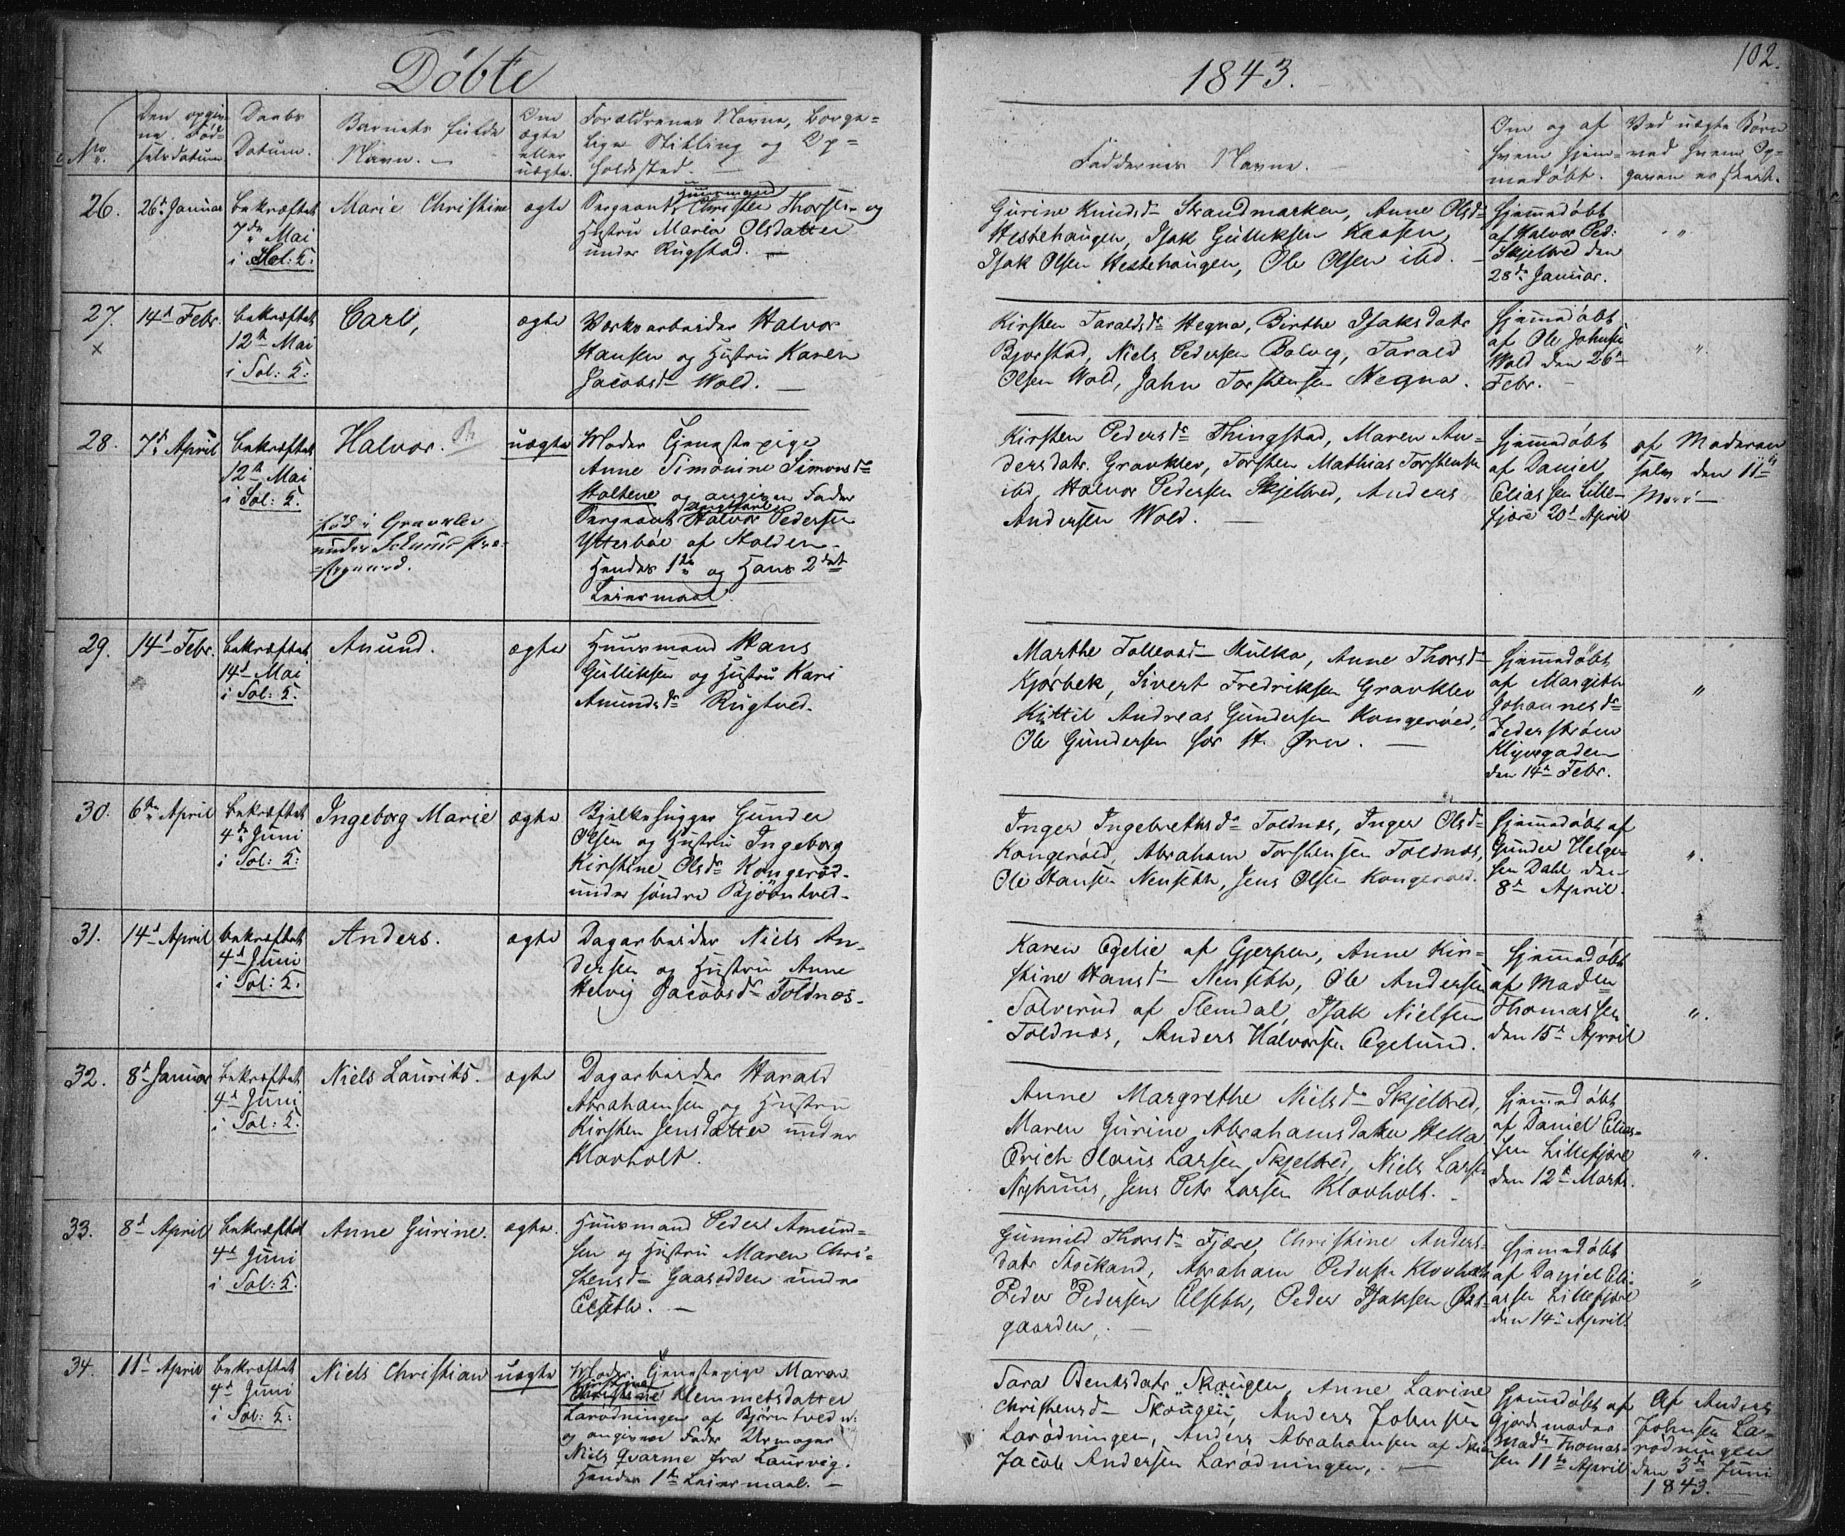 Döbte
1843.
102.
No
Den opgiv-
ne Föd-
selsdatum
Daabs
Datum.
Barnets fulde
Navn. —
Om
ægte
eller
uægte.
Forældrenes Navne, Borger-
lige Stilling og Op-
holdssted. —
Faddernes Navne. —
Om og af
hvem hjem-
medøbt.
Ved uægte Børn
ved hvem Op-
gaven er skeet.
26.
26de Januar
bekræftet
7de Mai
i Sol: K:
Marie Christine
ægte
Huusmand
Sergeant Christen Thorsen og
Hustru Maren Olsdatter
under Rugstad. —
Gurine Knudsd. Strandmarken, Anne Olsd.
Hestehaugen, Isak Gulliksen Kaasen,
Isak Olsen Hestehaugen, Ole Olsen ibd. —
Hjemmedøbt
af Halvor Ped:
Skjelbred den
28de Januar.
"
27.
x
14d Febr.
bekræftet
12te Mai
i Sol: K:
Carl,
ægte
Værksarbeider Halvor
Hansen og Hustru Karen
Jacobsd. Wold. —
Kirsten Taraldsdr. Hegna, Birthe Isaksdatr.
Bjorstad, Niels Pedersen Bolvig, Tarald
Olsen Wold, John Torstensen Hegna.
Hjemmedøbt
af Ole Johnsen
Wold den 26d
Febr. —
"
28.
7d April
bekræftet
12te Mai
i Sol: K:
Halvor.
Fød i Gravklev
under Solum Præ-
stegaard.
uægte
Moder Tjenestepige
Anne Simonine Simonsdr.
Holtene og angiven Fader
Sergeant Halvor Pedersen
Ytterbøe af Holden.
Hendes 1ste og Hans 2det
Leiermaal.
Kirsten Pedersdr. Thingstad, Maren An-
dersdatr. Gravklev, Torsten Mathias Torstensen
ibd, Halvor Pedersen Skjelbred, Andreas
Andersen Wold. —
Hjemmedøbt
af Daniel
Eliassen Lille-
fjære 20d April
af Moderen
selv den 11te
Mai —
29.
14d Febr.
bekræftet
14d Mai
i Sol: K:
Amund.
ægte
Huusmand Hans
Gulliksen og Hustru Kari
Amundsdr. Rugtved.
Marthe Tollevsd. Mulka, Anne Thorsd.
Kjørbek, Sivert Fredriksen Gravklev
Kittil Andreas Gundersen Kongerød,
Ole Gundersen for H. Ørn. —
Hjemmedøbt
af Margithe
Johannesdr.
Cederstrøm
Klyvegaden
den 14d Febr.
"
30.
6te April
bekræftet
4de Juni
i Sol: K:
Ingeborg Marie
ægte
Bjelkehugger Gunder
Olsen og Hustru Ingeborg
Kirstine Olsdr. Kongerød
under søndre Bjørntved.
Inger Ingebrethsdr. Toldnæs, Inger Olsd.
Kongerød, Abraham Torstensen Toldnæs,
Ole Hansen Nenseth, Jens Olsen Kongerød.
Hjemmedøbt af
Gunder Helge-
sen Dahl den
8d April.
"
31.
14d April
bekræftet
4d Juni
i Sol: K:
Anders.
ægte
Dagarbeider Niels An-
dersen og Hustru Anne
Helvig Jacobsdr. Toldnæs.
Karen Egelie af Gjerpen, Anne Kir-
stine Hansd. Nenseth, Ole Andersen
Solverud af Slemdal, Isak Nielsen
Toldnæs, Anders Halvorsen Egelund.
Hjemmedøbt
af Mad.
Thomassen
den 15d April
"
32.
8d Januar
bekræftet
4d Juni
i Sol: K:
Niels Laurits.
ægte
Dagarbeider Harald
Abrahamsen og Hustru
Kirsten Jensdatter under
Klovholt.
Anne Margrethe Nilsd. Skjelbred,
Maren Gurine Abrahamsdatter Hella
Erich Claus Larsen Skjelbred, Niels Larsen
Nyhuus, Jens Petr Larsen Klovholt.
Hjemmedøbt
af Daniel Elias-
sen Lillefjære
den 12d Marts.
"
33.
8d April
bekræftet
4d Juni
i Sol: K:
Anne Gurine.
ægte.
Huusmand Peder Amund-
sen og Hustru Maren Chri-
stensd. Gaasodden under
Elseth. —
Gunnild Thorsdr. Fjære, Christine Anders-
datr. Stokand, Abraham Pedersen Klovholt
Peder Pedersen Elseth, Peder Isaksen Øst-
gaarden. —
Hjemmedøbt
af Daniel Eli-
assen Lillefjære
den 14d April.
"
34.
11d April
bekræftet
4d Juni
i Sol: K:
Niels Christian
uægte
Moder Tjenestepige Maren
Kirstine
Klemmetsdatter
Larødningen af Bjørntvedn:
og angiven Fader Urmager
Niels Qvarme fra Laurvig.
Hendes 1ste Leiermaal. —
Sara Bentsdatr. Skougen, Anne Larine
Christensd. Skougen, Anders Johnsen
Larødningen, Anders Abrahamsen af Skien
Jacob Andersen Larødningen, —
Hjemmedøbt af
Gjordemoder
Mad. Thomas-
sen 11te April
Af Anders
Johnsen La-
rødningen
den 3de Juni
1843.